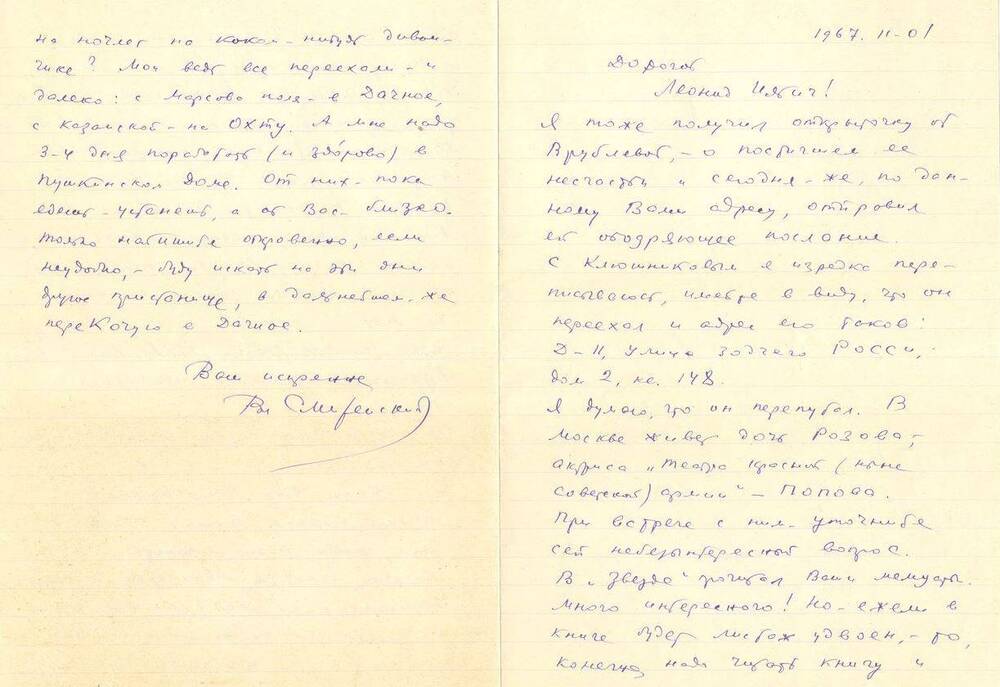 1967. 11-01
Дорогой
Леонид Ильич!
Я тоже получил открыточку от
Врублевой, - о постигшем ее
несчастьи и сегодня-же, по дан-
ному Вами адресу, отправил
ей ободряющее послание.
С Клюшниковым я изредка пере-
писываюсь, имейте в виду, что он
переехал и адрес его таков:
Д-11, улица зодчего Росси,
дом 2, кв. 148.
Я думаю, что он перепутал. В
Москве живет дочь Розова, -
актриса „Театра красной (ныне
советской) армии" - Попова.
При встрече с ним - уточните
сей небезынтересный вопрос.
В „Звезде" прочитал Ваши мемуары.
Много интересного! Но - ежели в
книге будет листаж удвоен, - то,
конечно надо читать книгу и
на ночлег на каком-нибудь диван-
чике? Мои ведь все переехали - и
далеко: с Марсова поля - в Дачное,
с Казанской - на Охту. А мне надо
3-4 дня поработать (и здóрово) в
Пушкинском Доме. От них - пока
едешь - устанешь, а от Вас - близко.
Только напишите откровенно, если
неудобно, - буду искать на эти дни
другое пристанище, в дальнейшем-же
перекочую в Дачное.
Ваш искренне
Вл Смиренский